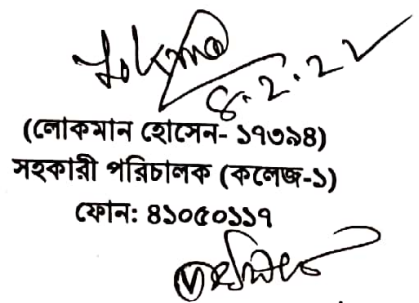 8.2.22
(লোকমান হোসেন- ১৭৩৯৪)
সহকারী পরিচালক (কলেজ-১)
ফোন: ৪১০৫০১১৭